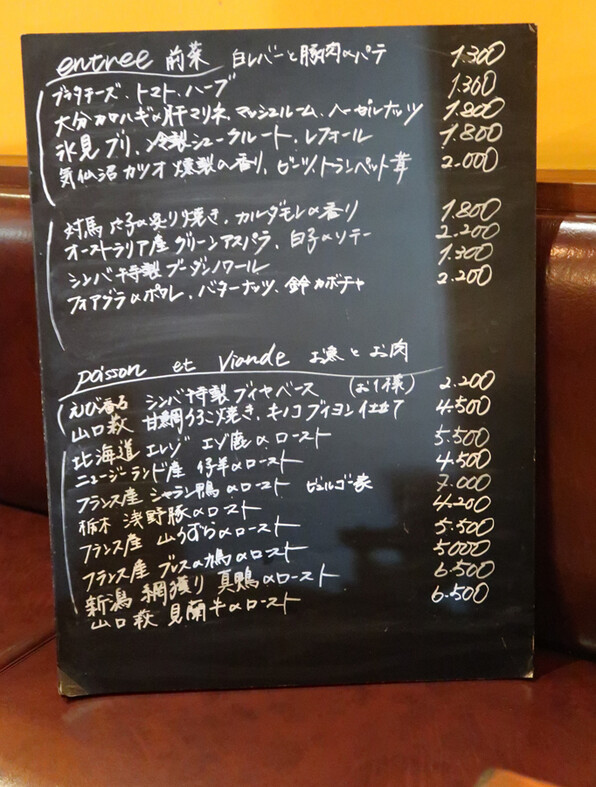 entree 前菜 白レバーと豚肉のパテ 1.300
ブラタチーズ、トマト、ハーブ 1.300
大分カワハギの肝マリネ、マッシュルーム、ヘーゼルナッツ 1.800
氷見ブリ、冷製シュークルート、レフォール 1.800
気仙沼カツオ燻製の香り、ビーツ、トランペット茸 2.000
対馬 穴子の炙り焼き、カルダモンの香り 1.800
オーストラリア産グリーンアスパラ、白子のソテー 2.200
シンバ特製ブーダンノワール 1.300
フォアグラのポワレ、バターナッツ、鈴カボチャ 2.200
poisson et viande お魚とお肉
えび香る シンバ特製ブイヤベース (お1人様) 2.200
山口萩 甘鯛うろこ焼き、キノコブイヨン仕立て 4.500
北海道 エレゾ エゾ鹿のロースト 5.500
ニュージーランド産 仔羊のロースト 4.500
フランス産 シャラン鴨のロースト ビュルゴー家 7.000
栃木 浅野豚のロースト 4.200
フランス産 山うずらのロースト 5.500
フランス産 ブレスの鳩のロースト 5000
新潟 網獲り 真鴨のロースト 6.500
山口萩 見蘭牛のロースト 6.500